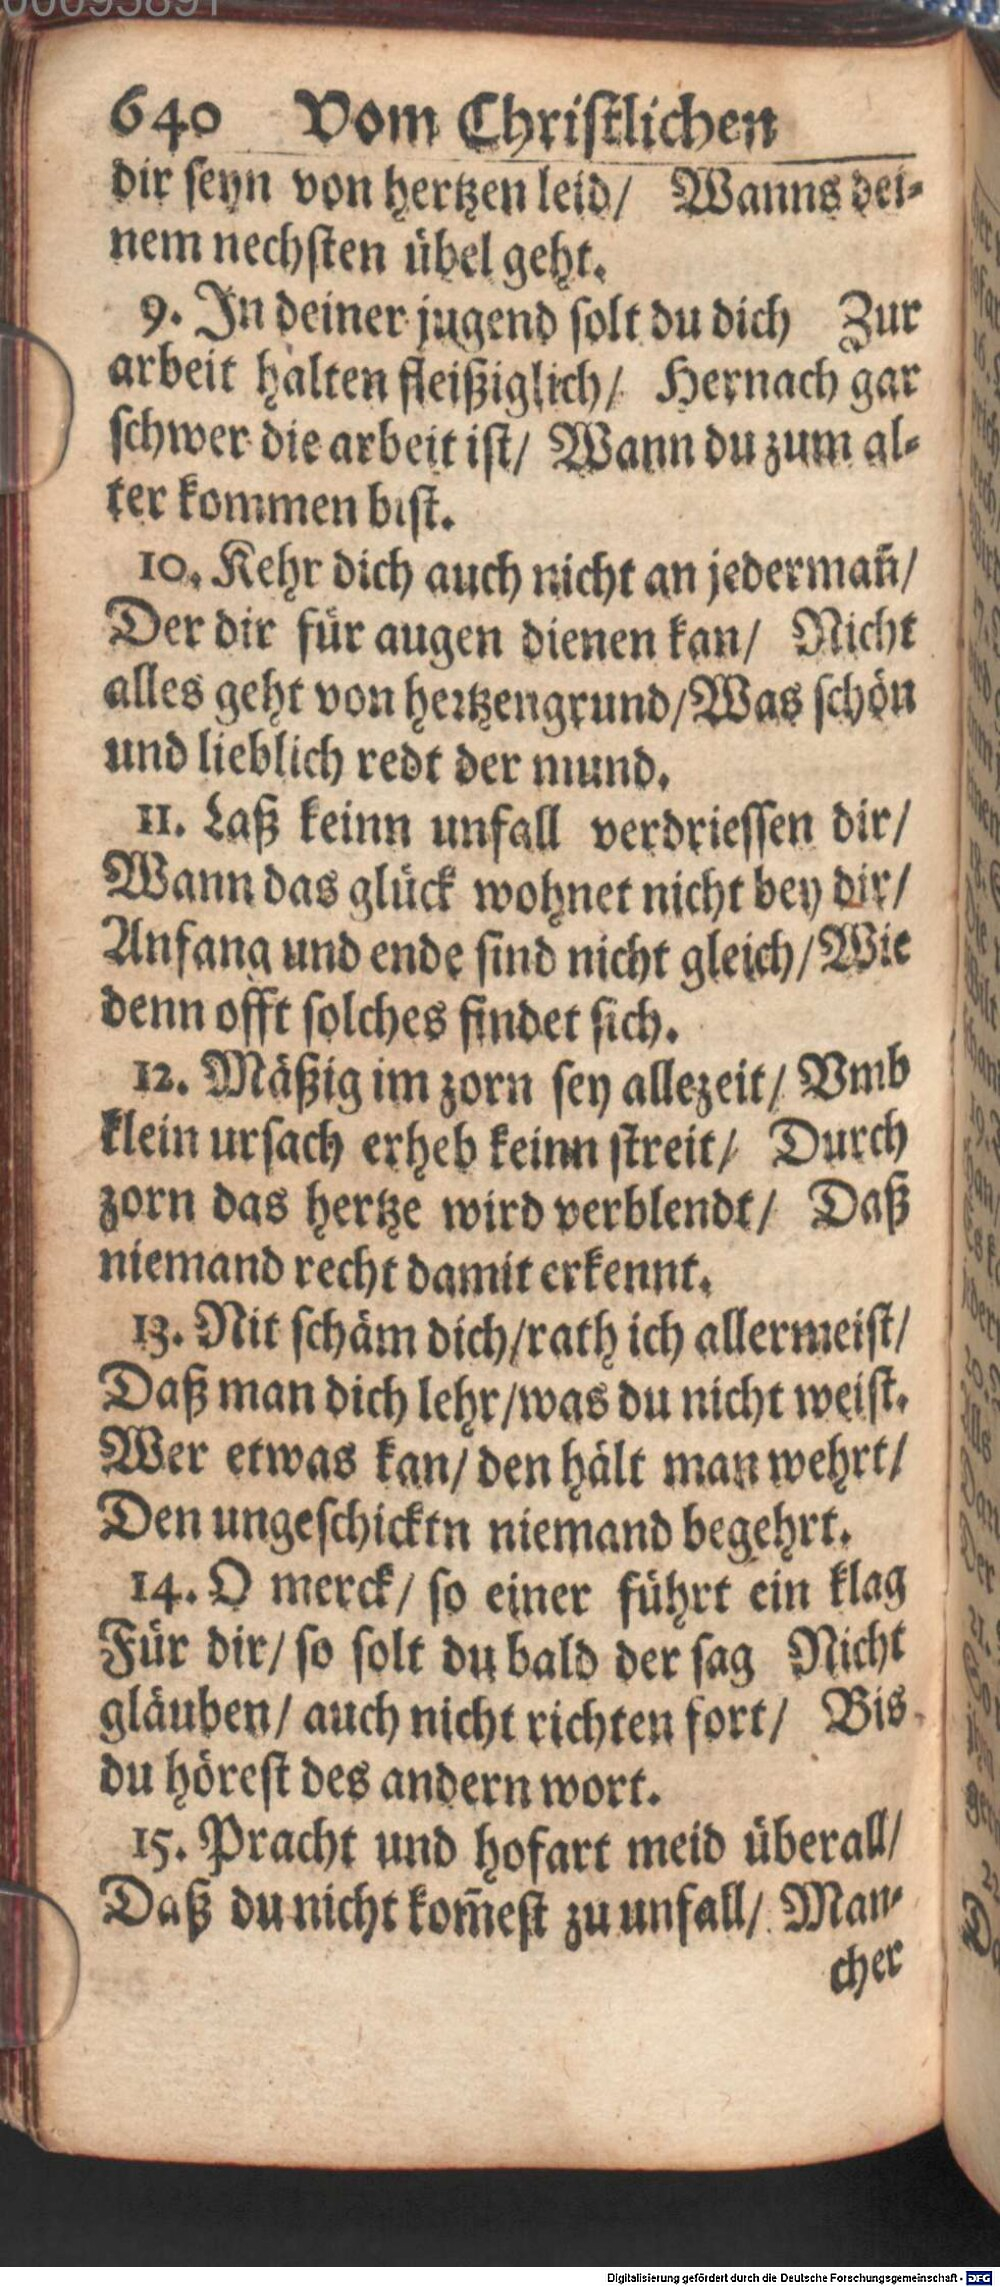 00095891
640 Vom Christlichen
dir seyn von hertzen leid/ Wanns dei-
nem nechsten übel geht.
9. In deiner jugend solt du dich Zur
arbeit halten fleißiglich/ Hernach gar
schwer die arbeit ist/ Wann du zum al-
ter kommen bist.
10. Kehr dich auch nicht an jederman̄/
Der dir für augen dienen kan/ Nicht
alles geht von hertzengrund/ Was schön
und lieblich redt der mund.
11. Laß keinn unfall verdriessen dir/
Wann das glück wohnet nicht bey dir/
Anfang und ende sind nicht gleich/ Wie
denn offt solches findet sich.
12. Mäßig im zorn sey allezeit/ Vmb
klein ursach erheb keinn streit/ Durch
zorn das hertze wird verblendt/ Daß
niemand recht damit erkennt.
13. Nit schäm dich/ rath ich allermeist/
Daß man dich lehr/ was du nicht weist.
Wer etwas kan/ den hält man wehrt/
Den ungeschicktn niemand begehrt.
14. O merck/ so einer führt ein klag
Für dir/ so solt du bald der sag Nicht
gläuben/ auch nicht richten fort/ Bis
du hörest des andern wort.
15. Pracht und hofart meid überall/
Daß du nicht kom̄est zu unfall/ Man-
cher
Digitalisierung gefördert durch die Deutsche Forschungsgemeinschaft - DFG